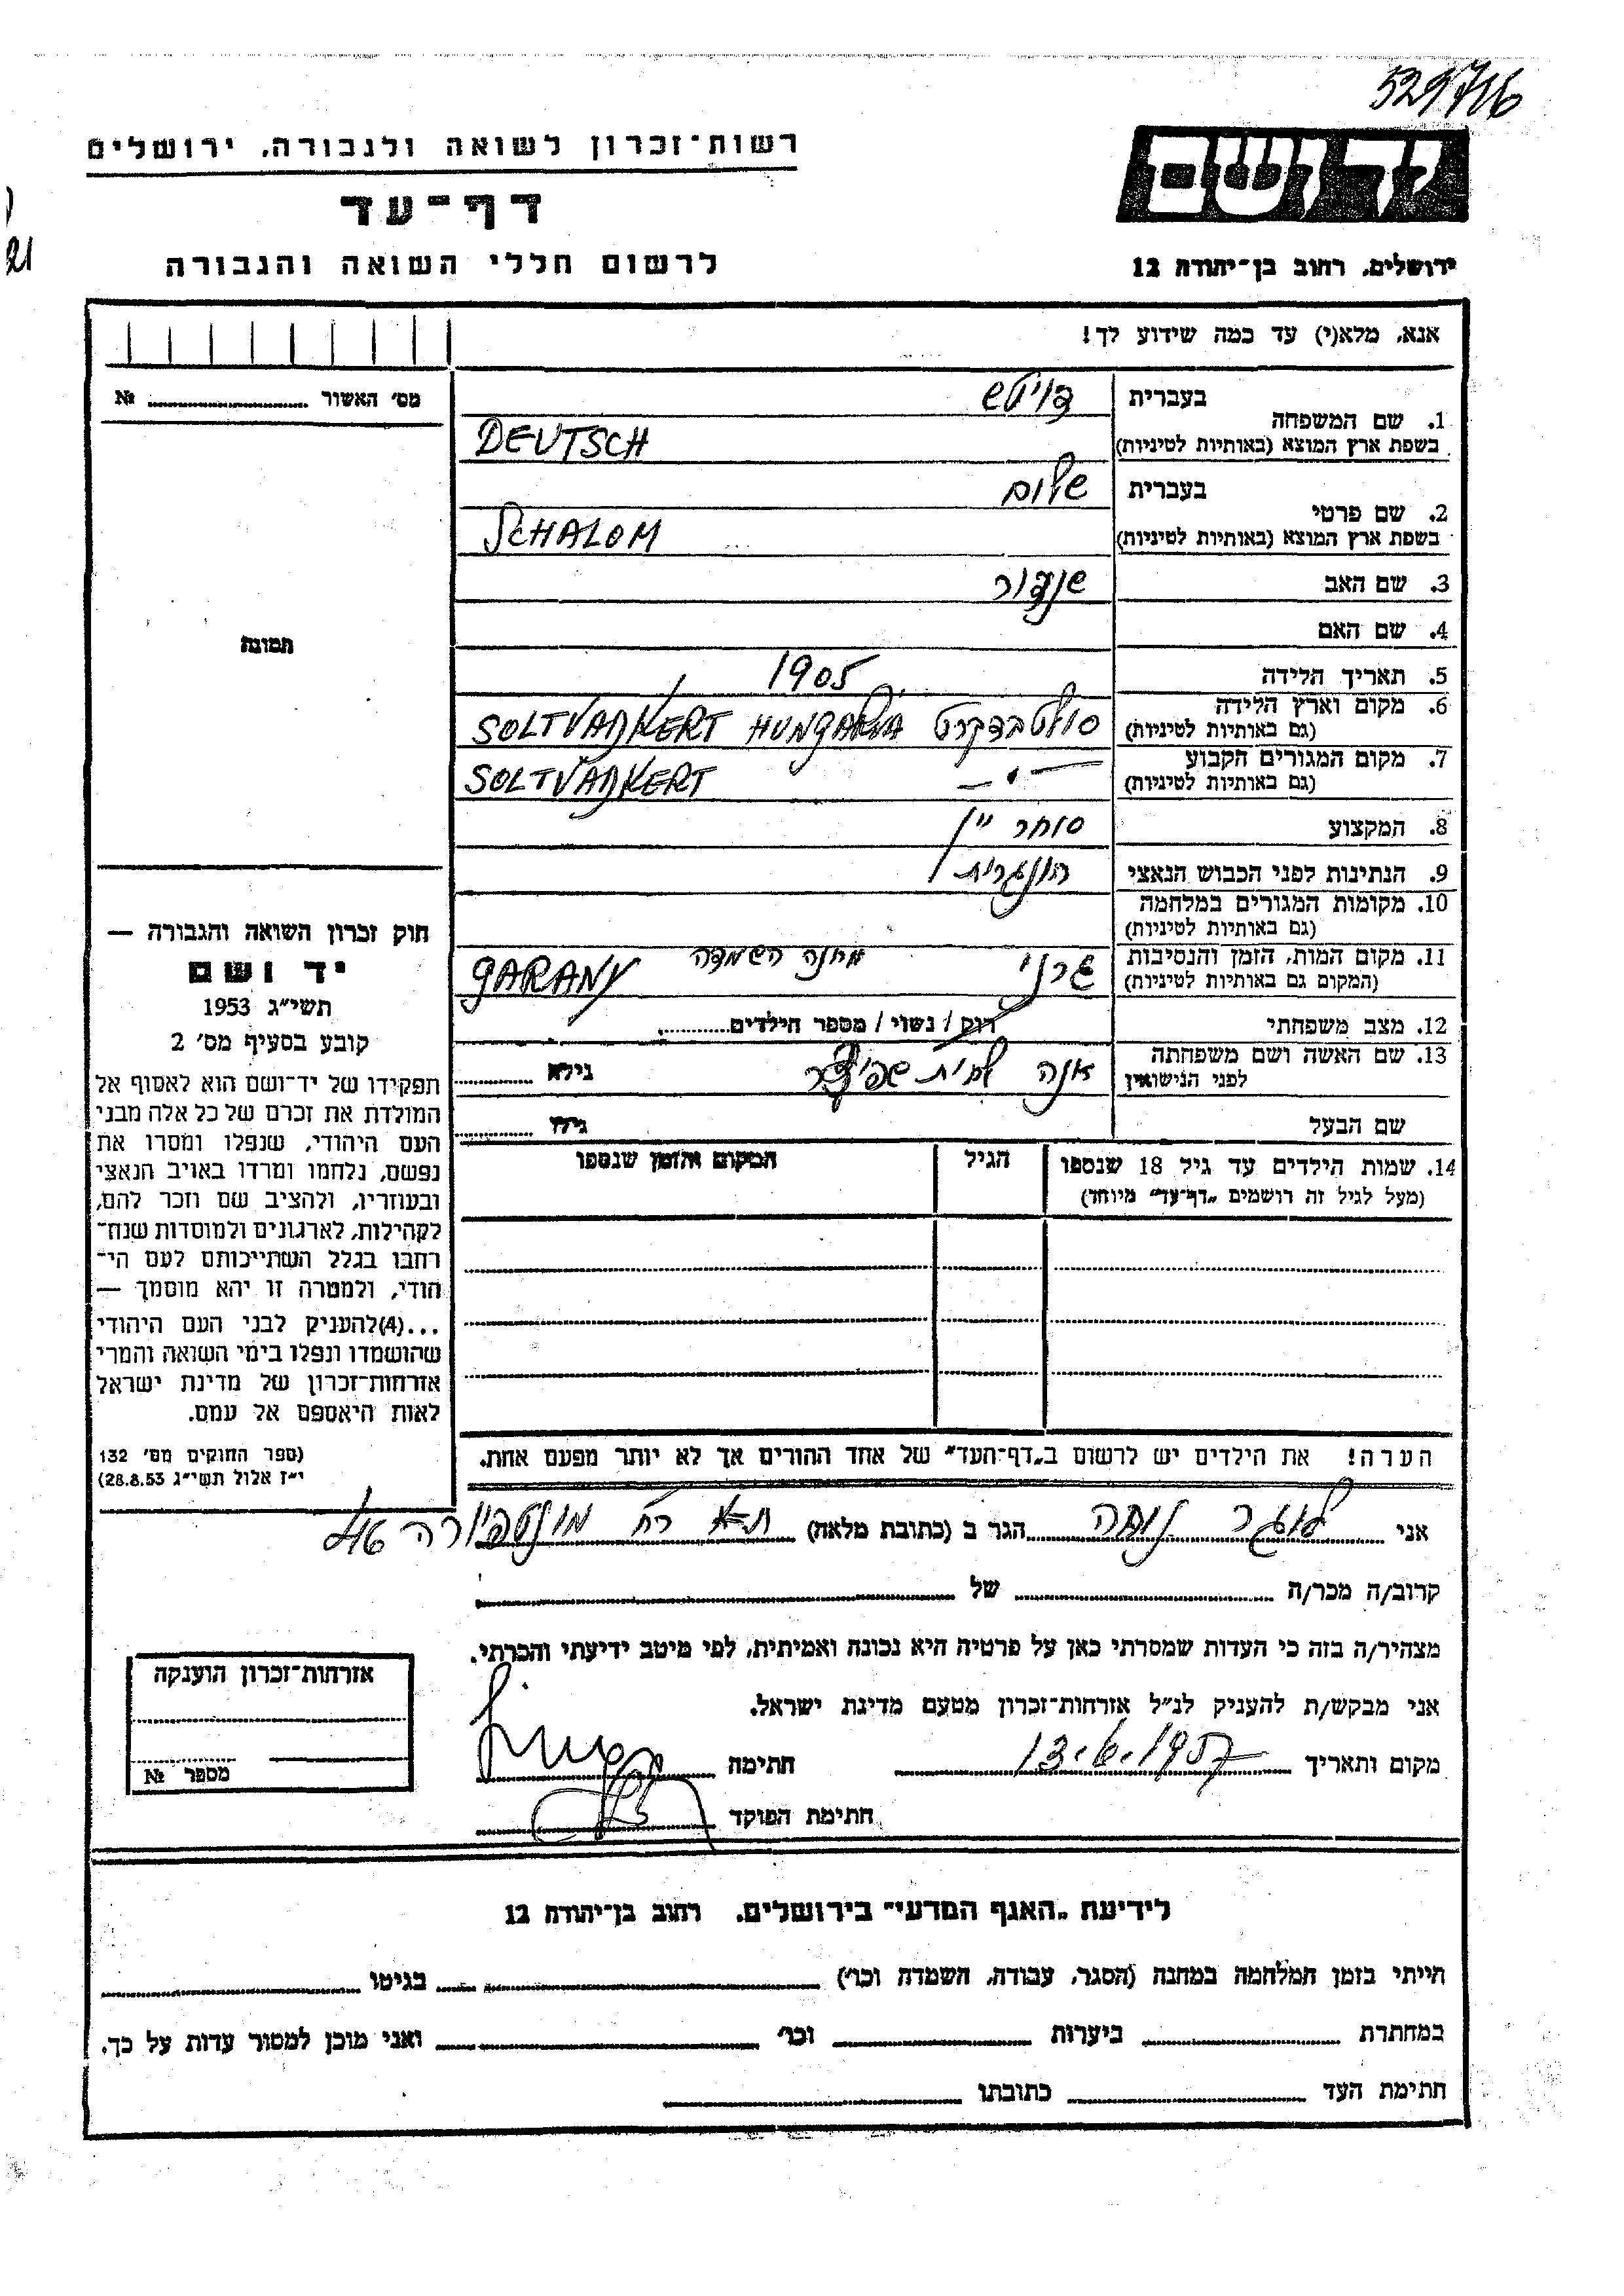 529716
רשות־זכרון לשואה ולגבורה, ירושלים
יד ושם
דף־עד
לרשום חללי השואה והגבורה
ירושלים, רחוב בן־יהודה 12
אנא, מלא(י) עד כמה שידוע לך!
מס׳ האשור № 
1. שם המשפחה
בעברית דויטש
בשפת ארץ המוצא (באותיות לטיניות) DEUTSCH
2. שם פרטי
בעברית שלום
בשפת ארץ המוצא (באותיות לטיניות) SCHALOM
3. שם האב
4. שם האם
תמונה
5. תאריך הלידה 1905
6. מקום וארץ הלידה
(גם באותיות לטיניות) סולטבדקרט SOLTVADKERT HUNGARIA
7. מקום המגורים הקבוע
(גם באותיות לטיניות) — " — SOLTVADKERT
8. המקצוע סוחר יין
9. הנתינות לפני הכבוש הנאצי הונגרית
10. מקומות המגורים במלחמה
(גם באותיות לטיניות)
11. מקום המות, הזמן והנסיבות
(המקום גם באותיות לטיניות) גרני מחנה השמדה GARANY
12. מצב משפחתי רוק / נשוי / מספר הילדים
13. שם האשה ושם משפחתה
לפני הנישואין אנה לבית שפיצר גילא
שם הבעל גילו
14. שמות הילדים עד גיל 18 שנספו
(מעל לגיל זה רושמים „דף־עד" מיוחד)
הגיל
המקום והזמן שנספו
הערה! את הילדים יש לרשום ב„דף־העד" של אחד ההורים אך לא יותר מפעם אחת.
חוק זכרון השואה והגבורה —
יד ושם
תשי״ג 1953
קובע בסעיף מס׳ 2
תפקידו של יד־ושם הוא לאסוף אל
המולדת את זכרם של כל אלה מבני
העם היהודי, שנפלו ומסרו את
נפשם, נלחמו ומרדו באויב הנאצי
ובעוזריו, ולהציב שם וזכר להם,
לקהילות, לארגונים ולמוסדות שנח־
רחבו בגלל השתייכותם לעם הי־
הודי, ולמטרה זו יהא מוסמך —
...(4)להעניק לבני העם היהודי
שהושמדו ונפלו בימי השואה והמרי
אזרחות־זכרון של מדינת ישראל
לאות היאספם אל עמם.
(ספר החוקים מס׳ 132
י״ז אלול תשי״ג 28.8.53)
אני הגר ב (כתובת מלאה) ת״א רח׳ מונטפיורה 46
קרוב/ה מכר/ה של
מצהיר/ה בזה כי העדות שמסרתי כאן על פרטיה היא נכונה ואמיתית, לפי מיטב ידיעתי והכרתי.
אני מבקש/ת להעניק לנ״ל אזרחות־זכרון מטעם מדינת ישראל.
מקום ותאריך 13.6.1957 חתימה
חתימת הפוקד
אזרחות־זכרון הוענקה
מספר №
לידיעת „האגף המדעי" בירושלים, רחוב בן־יהודה 12
הייתי בזמן המלחמה במחנה (הסגר, עבודה, השמדה וכו׳) בגיטו
במחתרת ביערות וכו׳ ואני מוכן למסור עדות על כך.
חתימת העד כתובתו